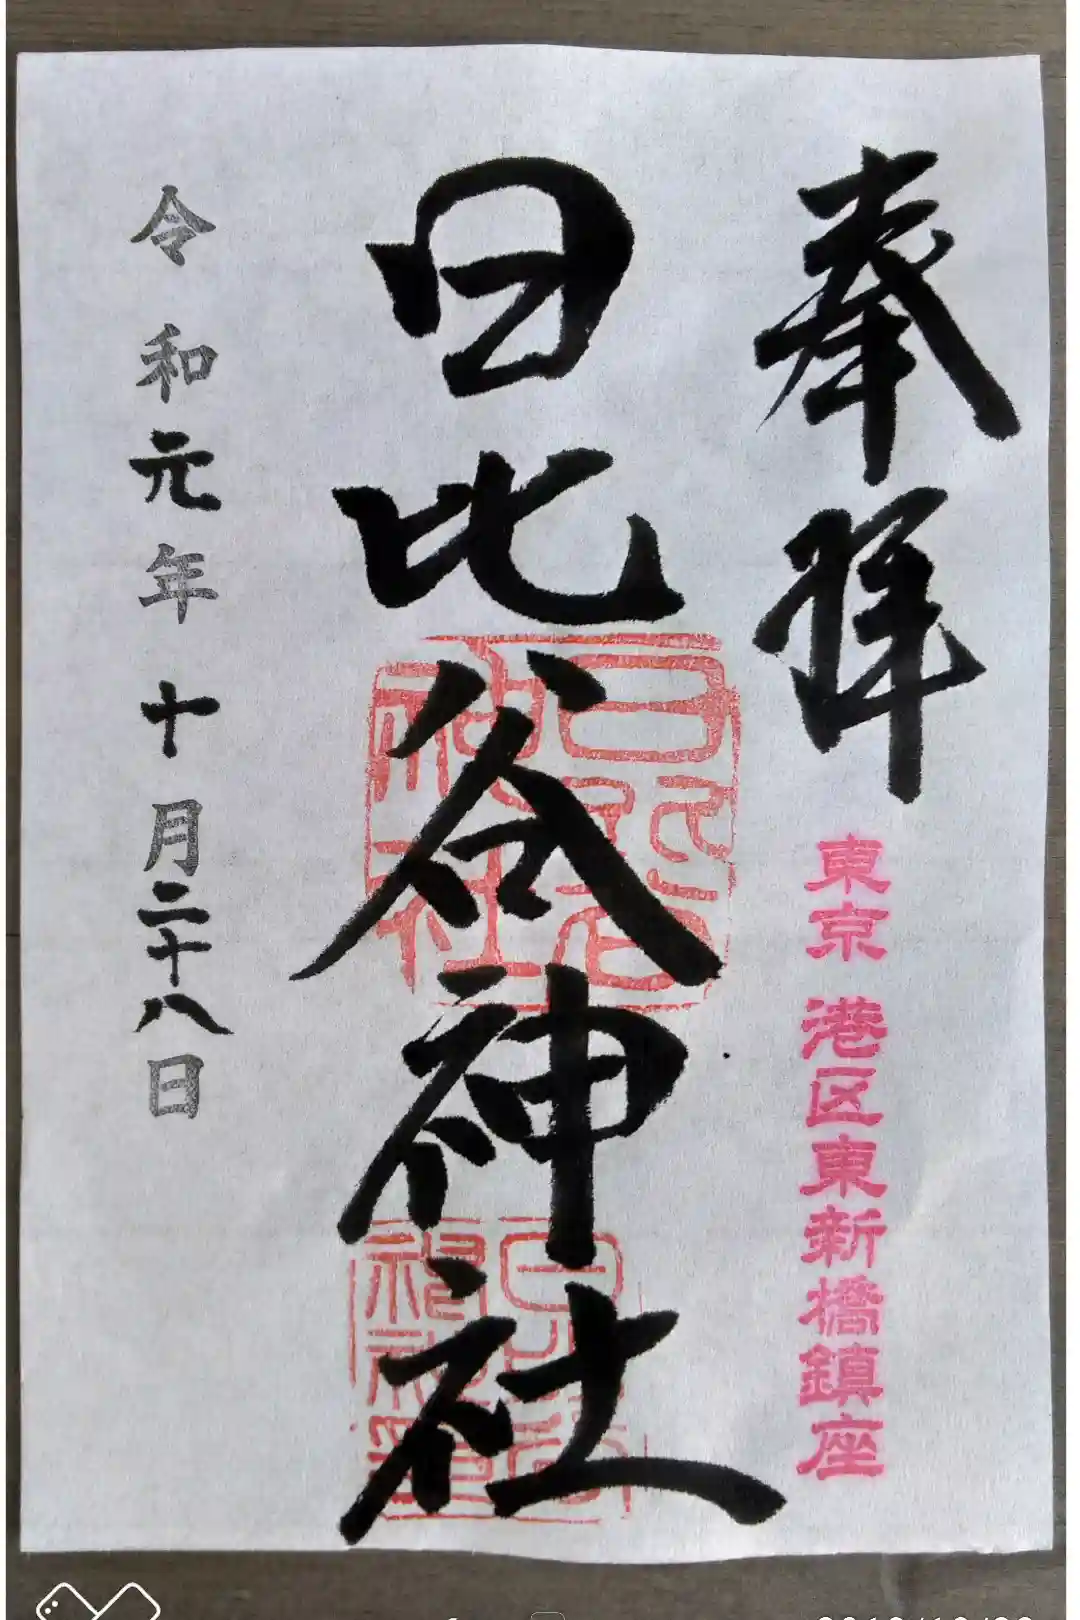 奉拝
東京 港区東新橋鎮座
日比谷神社
令和元年十月二十八日